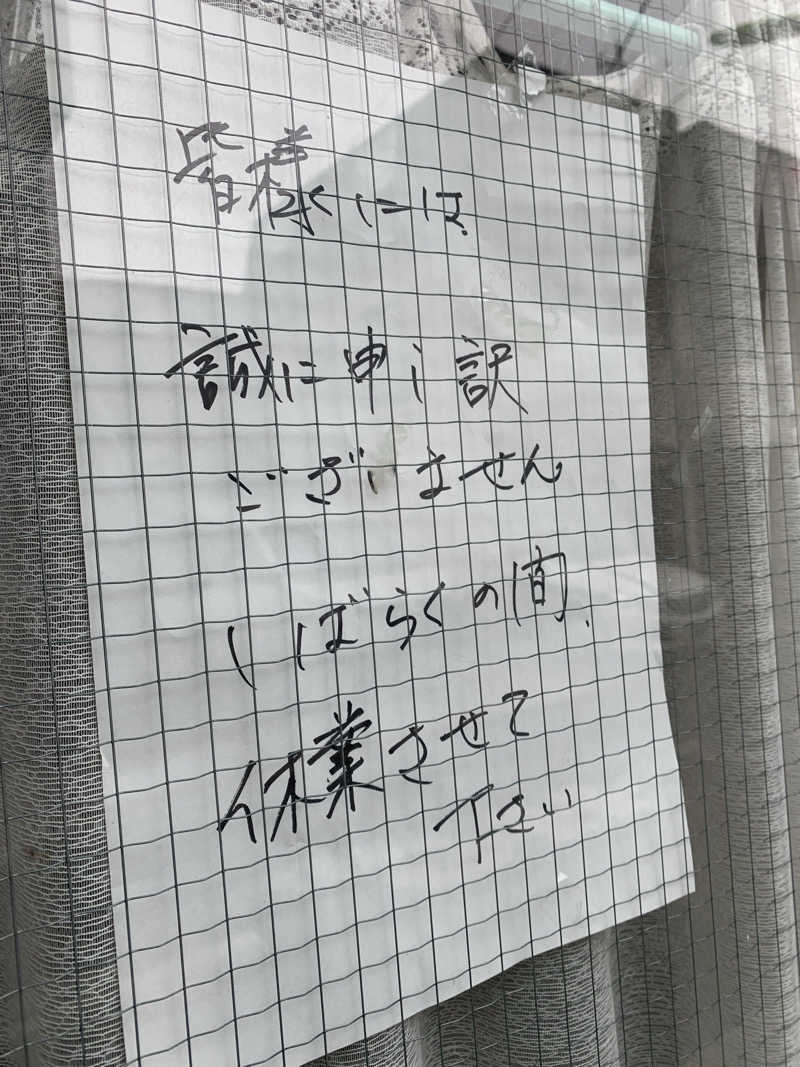 皆様くには
誠に申し訳
ございません
しばらくの間、
休業させて
下さい